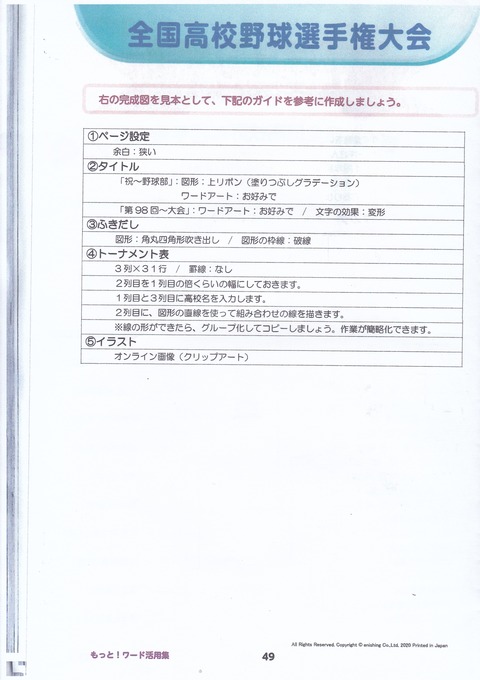 全国高校野球選手権大会
右の完成図を見本として、下記のガイドを参考に作成しましょう。
①ページ設定
余白：狭い
②タイトル
「祝～野球部」：図形：上リボン（塗りつぶしグラデーション）
ワードアート：お好みで
「第98回～大会」：ワードアート：お好みで　/　文字の効果：変形
③ふきだし
図形：角丸四角形吹き出し　/　図形の枠線：破線
④トーナメント表
3列×31行　/　罫線：なし
2列目を1列目の倍くらいの幅にしておきます。
1列目と3列目に高校名を入力します。
2列目に、図形の直線を使って組み合わせの線を描きます。
※線の形ができたら、グループ化してコピーしましょう。作業が簡略化できます。
⑤イラスト
オンライン画像（クリップアート）
All Rights Reserved. Copyright © enishing Co.,Ltd. 2020 Printed in Japan
もっと！ワード活用集
49